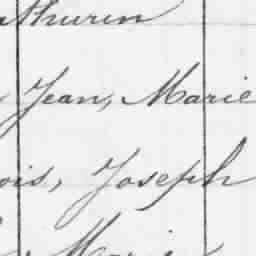 athurin
Jean, Marie
ois, Joseph
Mari